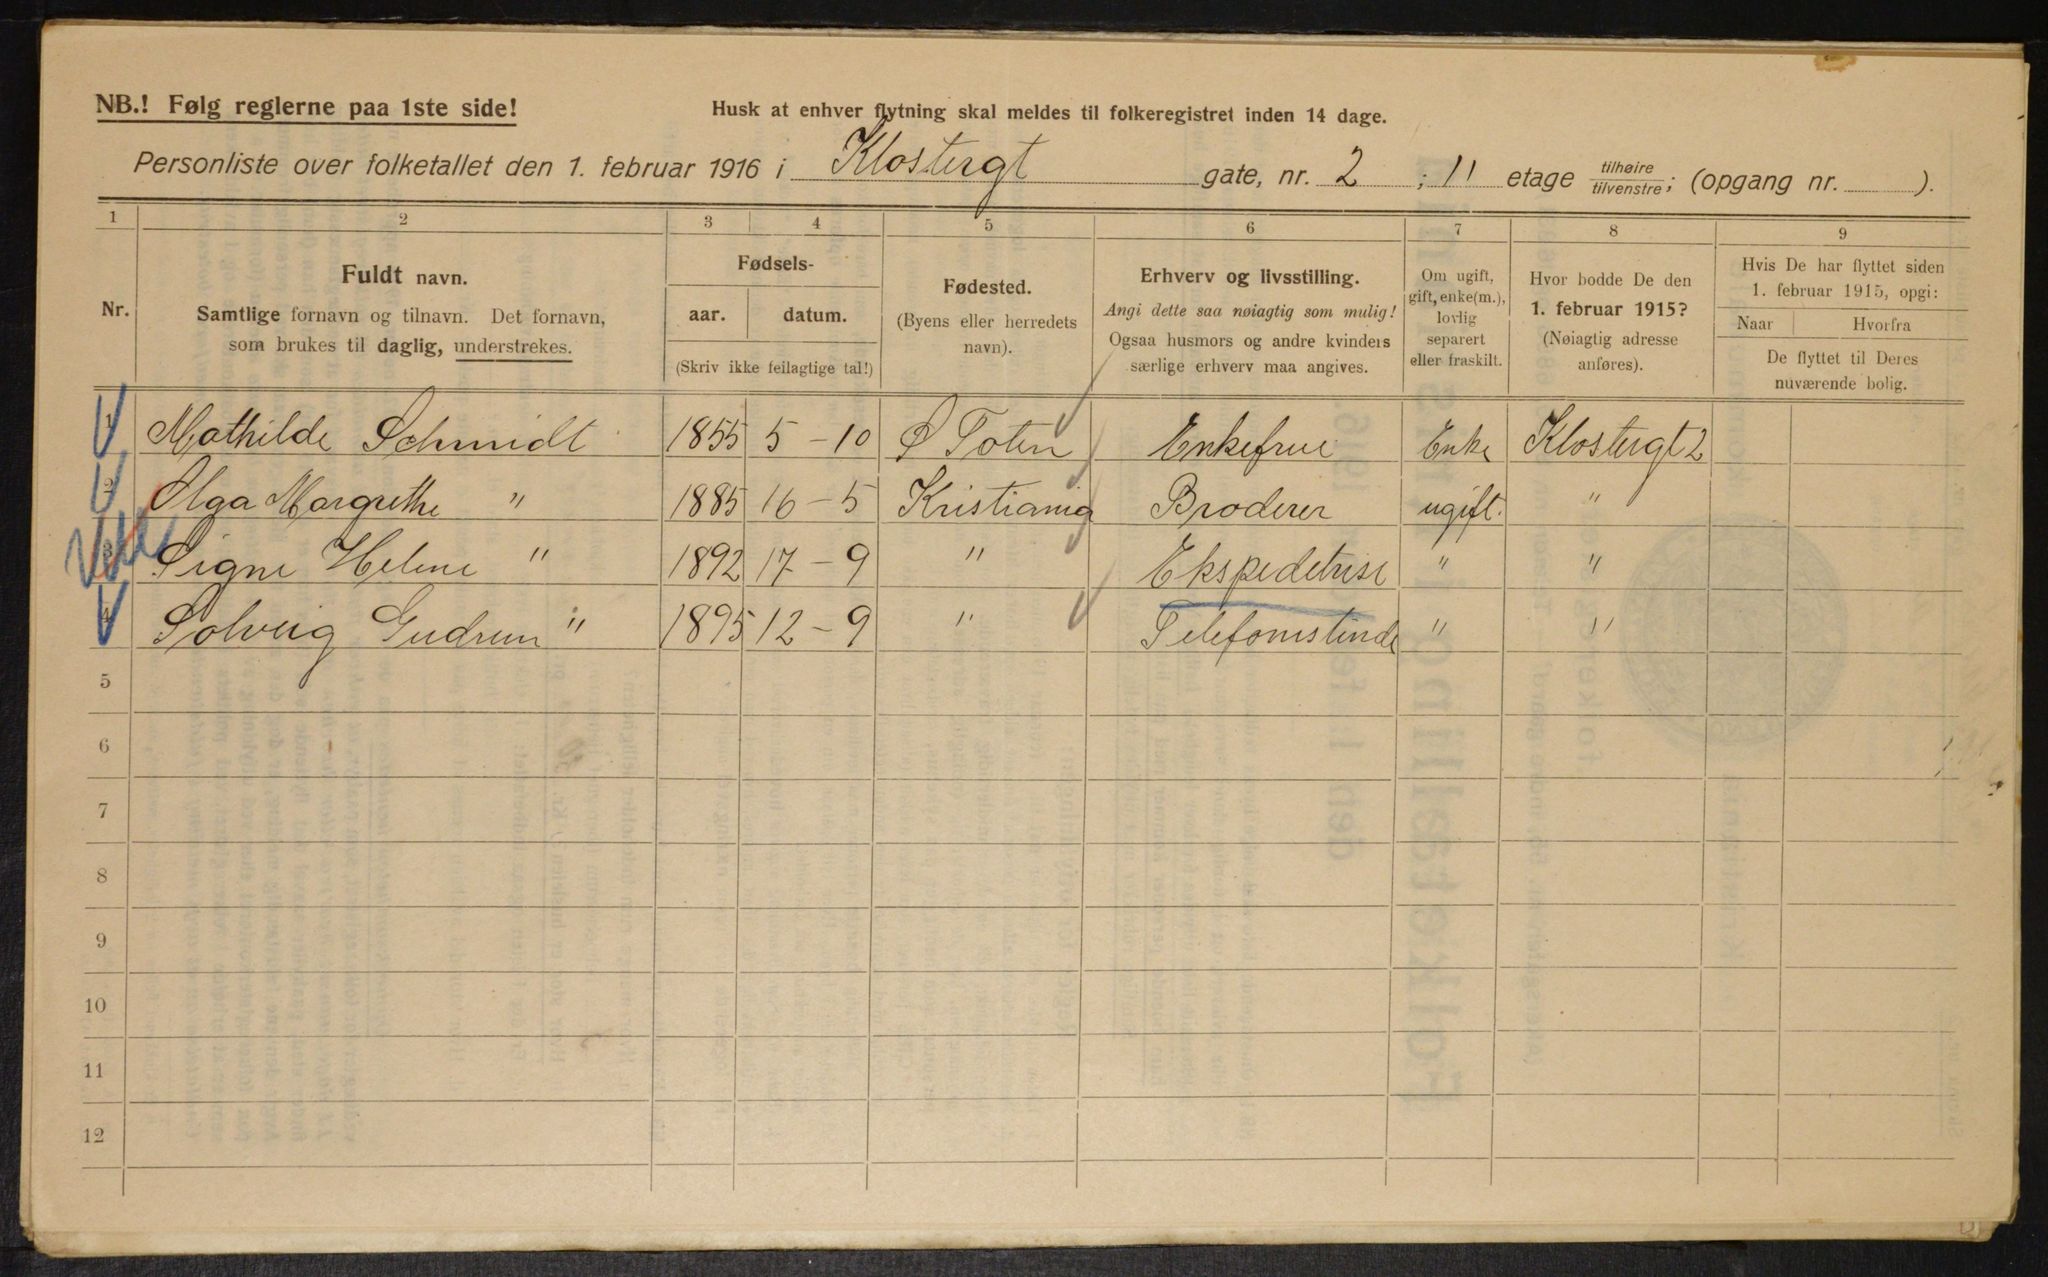 NB.! Følg reglerne paa 1ste side!
Husk at enhver flytning skal meldes til folkeregistret inden 14 dage.
Personliste over folketallet den 1. februar 1916 i Klostergt gate, nr. 2 ; 11 etage tilhøire/tilvenstre; (opgang nr. ).
1 2 3 4 5 6 7 8 9
Nr.
Fuldt navn.
Samtlige fornavn og tilnavn. Det fornavn,
som brukes til daglig, understrekes.
Fødsels-
aar. datum.
(Skriv ikke feilagtige tal!)
Fødested.
(Byens eller herredets
navn).
Erhverv og livsstilling.
Angi dette saa nøiagtig som mulig!
Ogsaa husmors og andre kvinders
særlige erhverv maa angives.
Om ugift,
gift, enke(m.),
lovlig
separert
eller fraskilt.
Hvor bodde De den
1. februar 1915?
(Nøiagtig adresse
anføres).
Hvis De har flyttet siden
1. februar 1915, opgi:
Naar Hvorfra
De flyttet til Deres
nuværende bolig.
1 Mathilde Schmidt 1855 5-10 Ø Toten Enkefrue Enke Klostergt 2
2 Olga Margrethe " 1885 16-5 Kristiania Broderer ugift. "
3 Signe Helene " 1892 17-9 " Ekspedetrise " "
4 Solveig Gudrun " 1895 12-9 " Telefonistinde " "
5
6
7
8
9
10
11
12